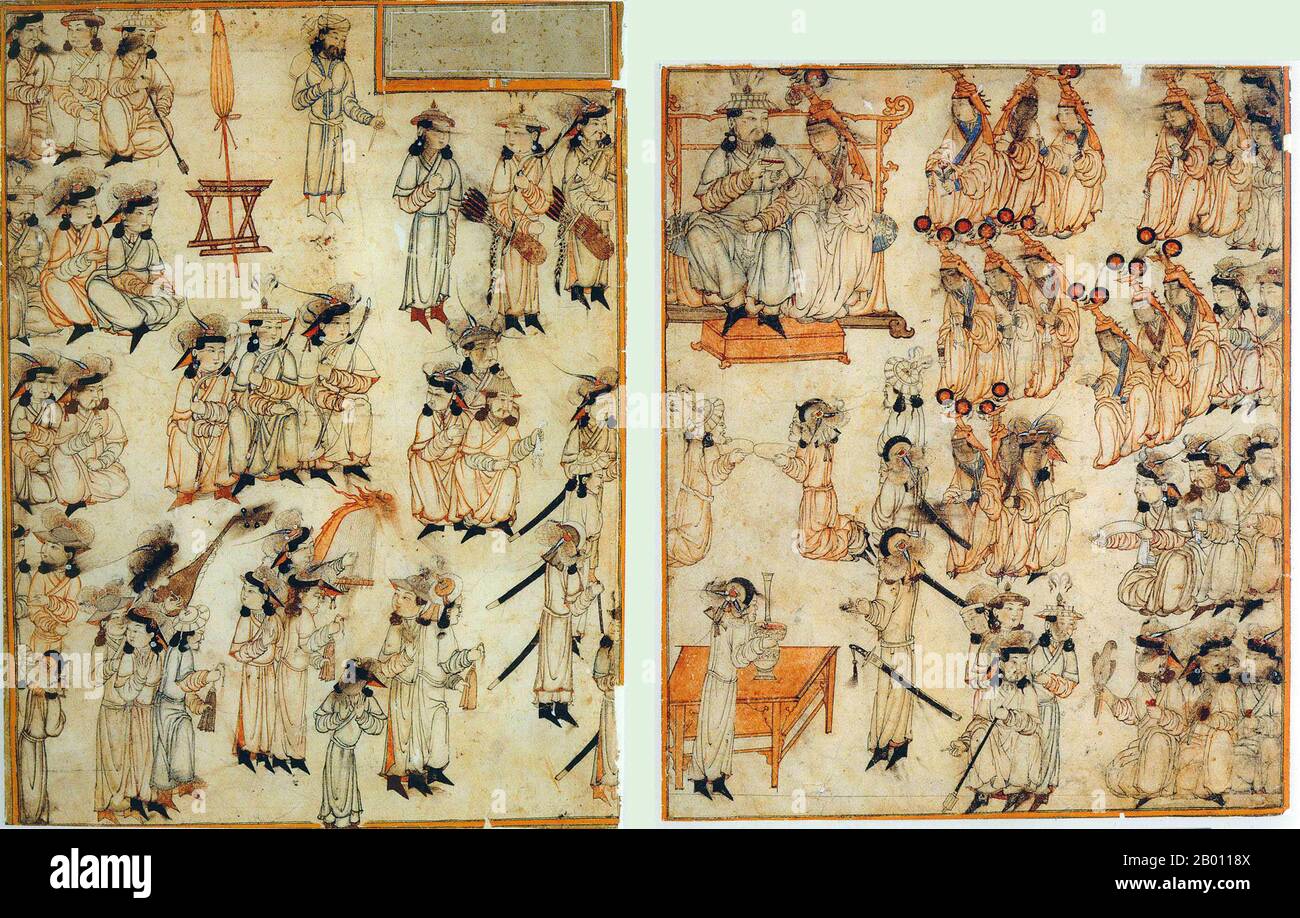 alamy
Image ID: 2B0118X
www.alamy.com